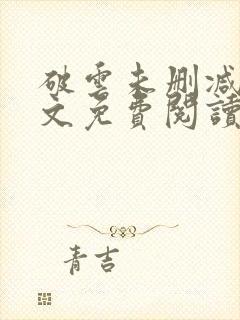 破雲未刪減
文免費閱讀
青吉